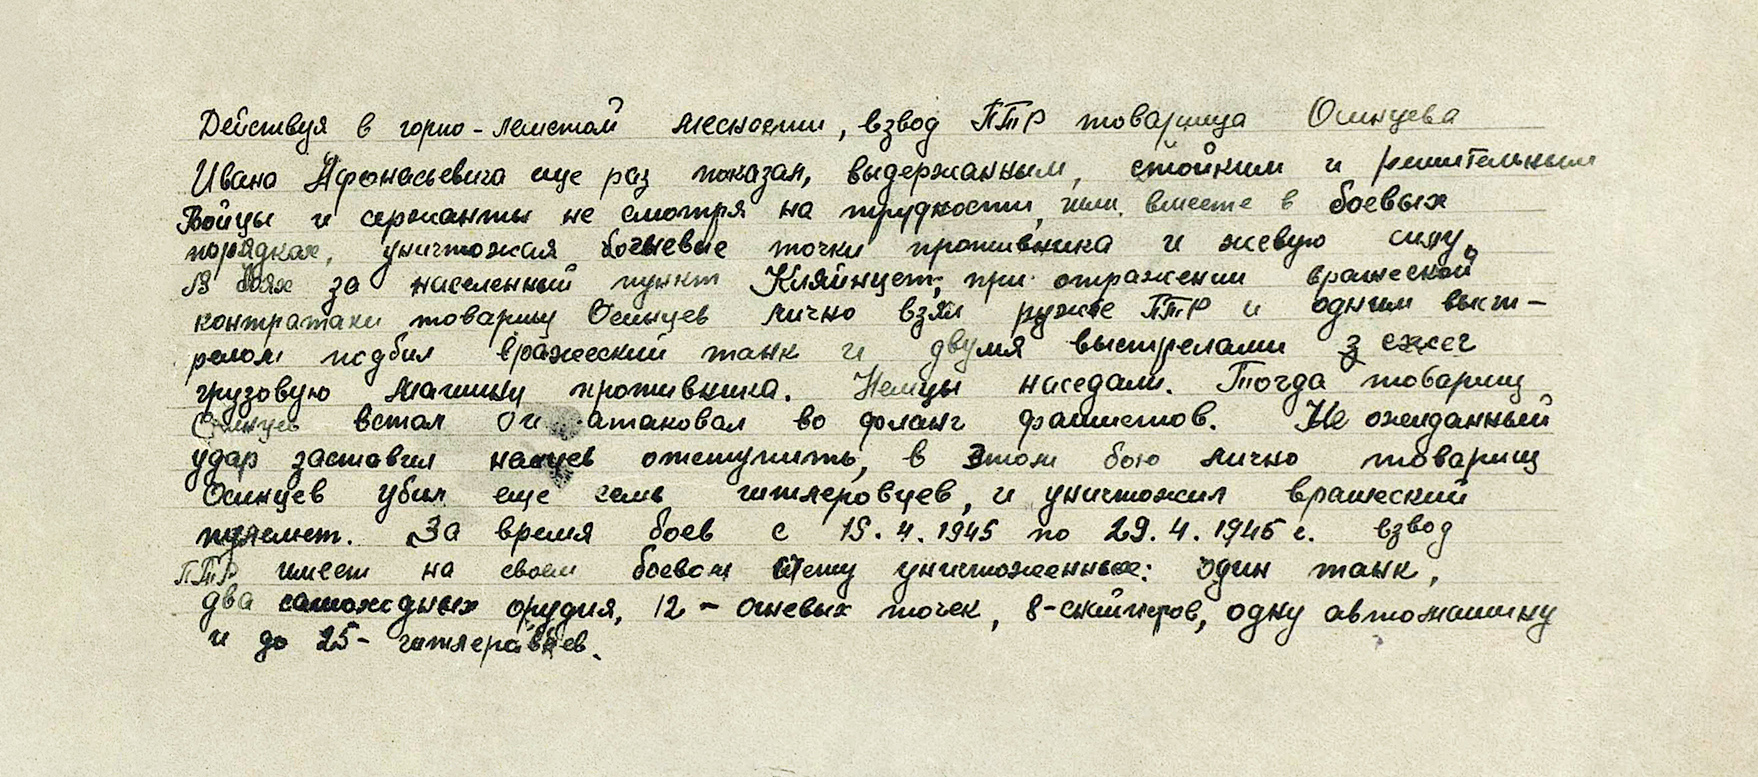 Действуя в горно-лесистой местности, взвод ПТР товарища Осинцева
Ивана Афонасьевича еще раз показал, выдержанным, стойким и решительным
Бойцы и сержанты не смотря на трудности, шли вместе в боевых
порядках, уничтожая огневые точки противника и живую силу.
В боях за населенный пункт Кляйнцет, при отражении вражеской
контратаки товарищ Осинцев лично взял ружье ПТР и одним выст-
релом подбил вражеский танк и двумя выстрелами сжег
грузовую машину противника. Немцы наседали. Тогда товарищ
Осинцев встал и атаковал во фланг фашистов. Не ожиданный
удар заставил отступить, в этом бою лично товарищ
Осинцев убил еще семь гитлеровцев, и уничтожил вражеский
пулемет. За время боев с 15.4.1945 по 29.4.1945 г. взвод
ПТР имеет на своем боевом счету уничтоженных: один танк,
два самоходных орудия, 12 - огневых точек, 8-снайперов, одну автомашину
и до 25- гитлеровцев.